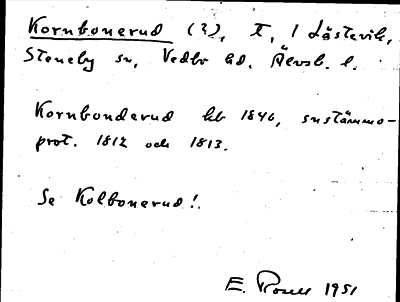 Kornbonerud (?), t, i Låstevik,
Steneby sn, Vedbo hd. Älvsb. l.
Kornbonderud hb 1846, snstämmo-
prot. 1812 och 1813.
Se Kolbonerud!
E. 1951